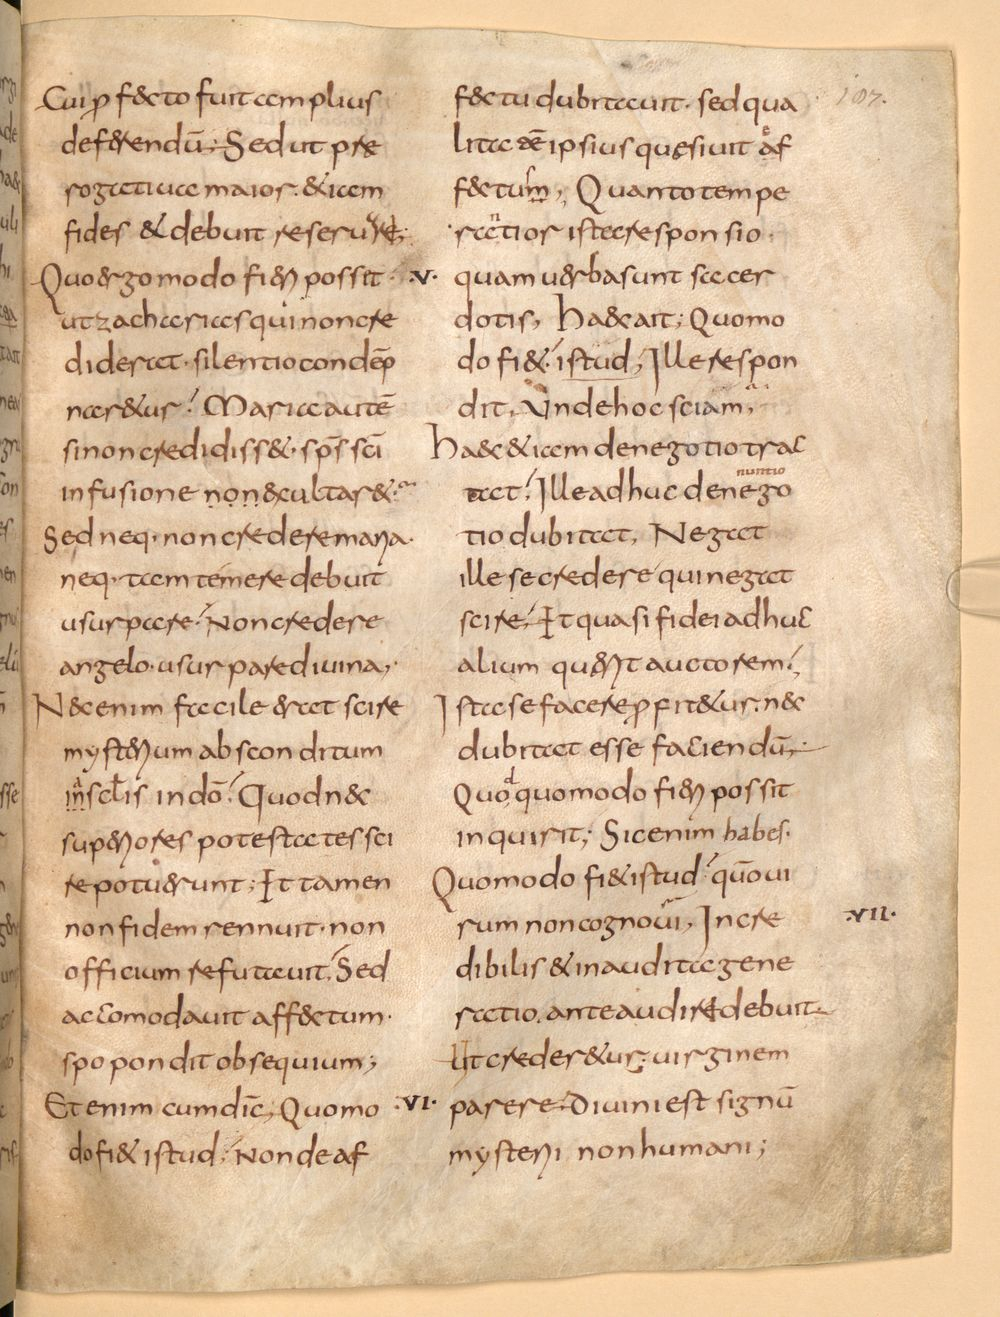 Cui ꝓfecto fuit amplius
deferendū; Sed ut pre
rogatiua maior; &iam
fides & debuit reseruare;
Quo ergo modo fieri possit
ut zacharias qui noncre
diderat · silentio condēp
nar&ur? Maria autē
si non credidiss& · sp̄s sc̄i
infusione non exultar&
Sed neq· non credere maria ·
neq· tam temere debuit
usurpare? Non credere
angelo · usurpare diuina;
Nec enim facile erat scire
mysterium absconditum
in sclis in dō? Quod nec
superiores potestates sci
re potuerunt; Et tamen
non fidem rennuit · non
officium refutauit; Sed
accomodauit affectum ·
spopondit obsequium;
Etenim cum dic̄; Quomo
do fi& istud? Non de af
·V·
·VI·
107.
fectu dubitauit · sed qua
litatē ipsius quesiuit af
fectum; Quanto tempe
ratior ista responsio ·
quam uerba sunt sacer
dotis, haec ait; Quomo
do fi& istud; Ille respon
dit, Vnde hoc sciam;
haec &iam de negotio trac
tat? Ille adhuc de nego
nuntio
tio dubitat, Negat
ille se credere qui negat
scire; Et quasi fidei adhuc
alium querit auctorem?
Ista se facere ꝓfit&ur · nec
dubitat esse faciendū;
Quod quomodo fieri possit
inquirit; Sic enim habes ·
Quomodo fi& istud? quō ui
rum non cognoui, Incre
dibilis & inaudita gene
ratio, ante audire debuit
ut creder&ur; uirginem
parere · Diuini est signū
mysterii non humani;
·VII·